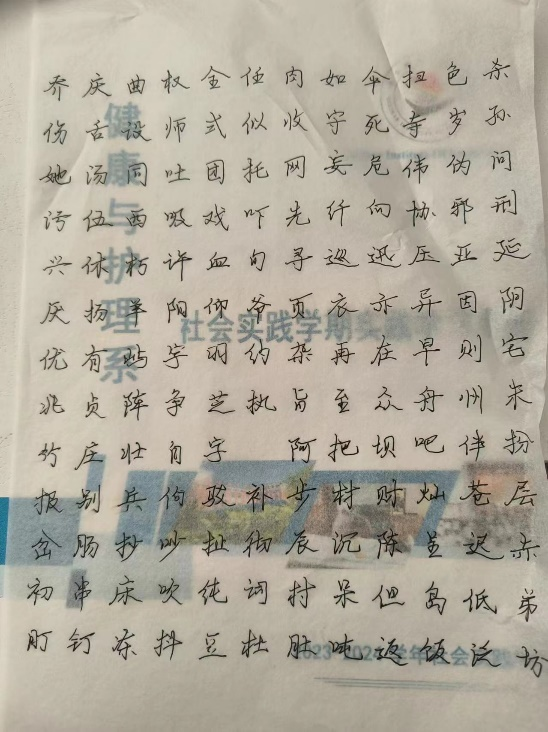 乔 庆 曲 权 全 任 肉 如 伞 扭 色 杀
伤 舌 设 师 式 似 收 守 死 寺 岁 孙
她 汤 同 吐 团 托 网 妄 危 伟 伪 问
污 伍 西 吸 戏 吓 先 纤 向 协 邪 刑
兴 休 朽 许 血 旬 寻 巡 迅 压 亚 延
厌 扬 羊 阳 仰 爷 页 衣 亦 异 因 阴
优 有 屿 宇 羽 约 杂 再 在 早 则 宅
兆 贞 阵 争 芝 执 旨 至 众 舟 州 朱
竹 庄 壮 自 字 阿 把 坝 吧 伴 扮
报 别 兵 伯 驳 补 步 材 财 灿 苍 层
岔 肠 抄 吵 扯 彻 辰 沉 陈 呈 迟 赤
初 串 床 吹 纯 词 村 呆 但 岛 低 弟
盯 钉 冻 抖 豆 杜 肚 吨 返 饭 泛 坊
健康与护理系
社会实践学期实
2023-202 学年社会实践